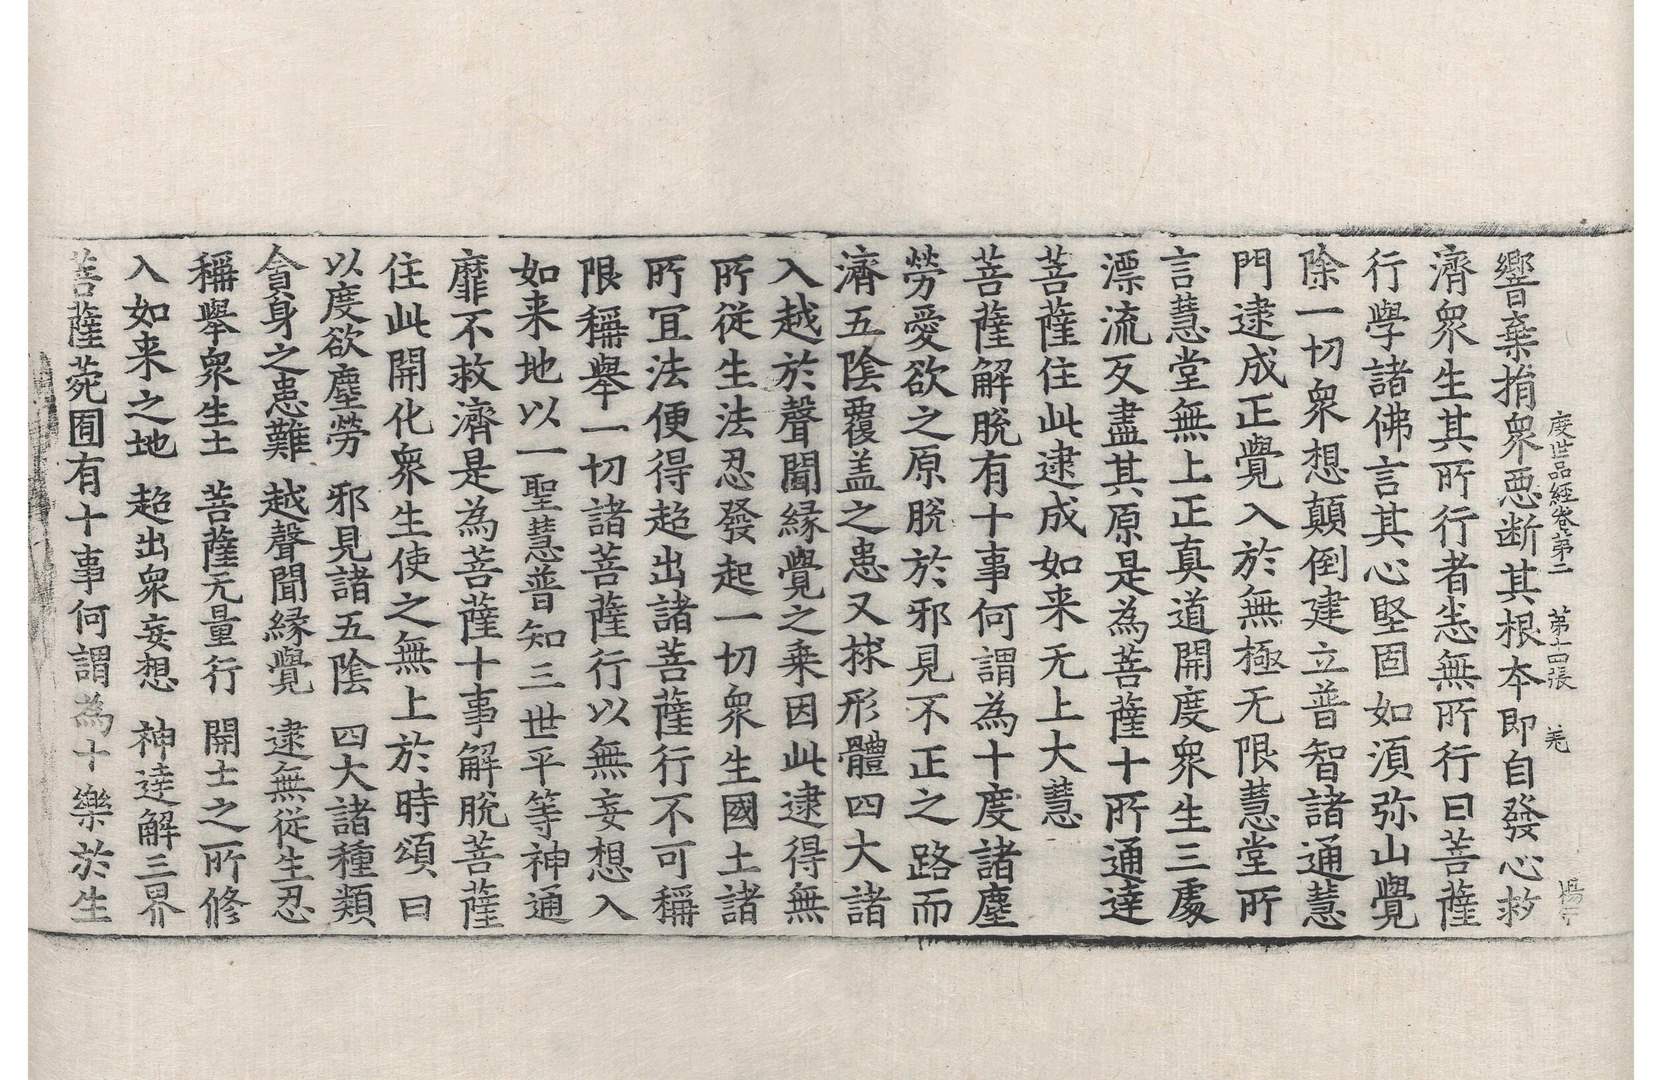 度世品經卷第二　第十四張　羌
響棄捐衆惡断其根本即自發心救
濟衆生其所行者恙無所行曰菩薩
行學諸佛言其心堅固如須弥山覺
除一切衆想顛倒建立普智諸通慧
門逮成正覺入於無極无限慧堂所
言慧堂無上正真道開度衆生三處
漂流永盡其原是為菩薩十所通達
菩薩住此逮成如来无上大慧
菩薩解脫有十事何謂為十度諸塵
勞愛欲之原脫於邪見不正之路而
濟五陰覆盖之患又捄形體四大諸
入越於聲聞緣覺之乗因此逮得無
所從生法忍發起一切衆生國土諸
所冝法便得超出諸菩薩行不可稱
限稱舉一切諸菩薩行以無妄想入
如来地以一聖慧普知三世平等神通
靡不救濟是為菩薩十事解脫菩薩
住此開化衆生使之無上於時頌曰
以度欲塵勞　邪見諸五陰　四大諸種類
貪身之患難　越聲聞緣覺　逮無從生忍
稱舉衆生土　菩薩无量行　開士之所修
入如来之地　超出衆妄想　神達解三界
菩薩菀囿有十事何謂為十樂於生